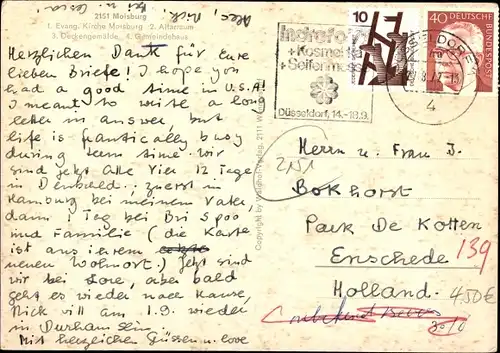 2151 Moisburg
1. Evang. Kirche Moisburg 2. Altarraum
3. Deckengemälde 4. Gemeindehaus
Herzlichen Dank für eure
lieben Briefe! I hope you
had a good time in U.S.A!
I meant to write a long
letter in answer, but
life is frantically busy
during term time. Wir
sind jetzt alle vier 12 Tage
in ; zuerst in
Hamburg bei meinem Vater,
dann 1 Tag bei
und Familie (die Karte
ist aus ihrem
neuen Wohnort.) Jetzt sind
wir bei Lore, aber bald
geht es wieder nach Hause,
Nick will am 1.9. wieder
in Durham sein.
Mit herzlichen Grüssen u. love
Alec, Nick,
Copyright by Verlag, 2111
+Kosmetik
+Seifen
Düsseldorf, 14.-18.9.
10
40
DEUTSCHE BUNDESPOST
4
2151
Herrn u. Frau J.
Bokhorst
Park De Kotten
Enschede
139
Holland
450€